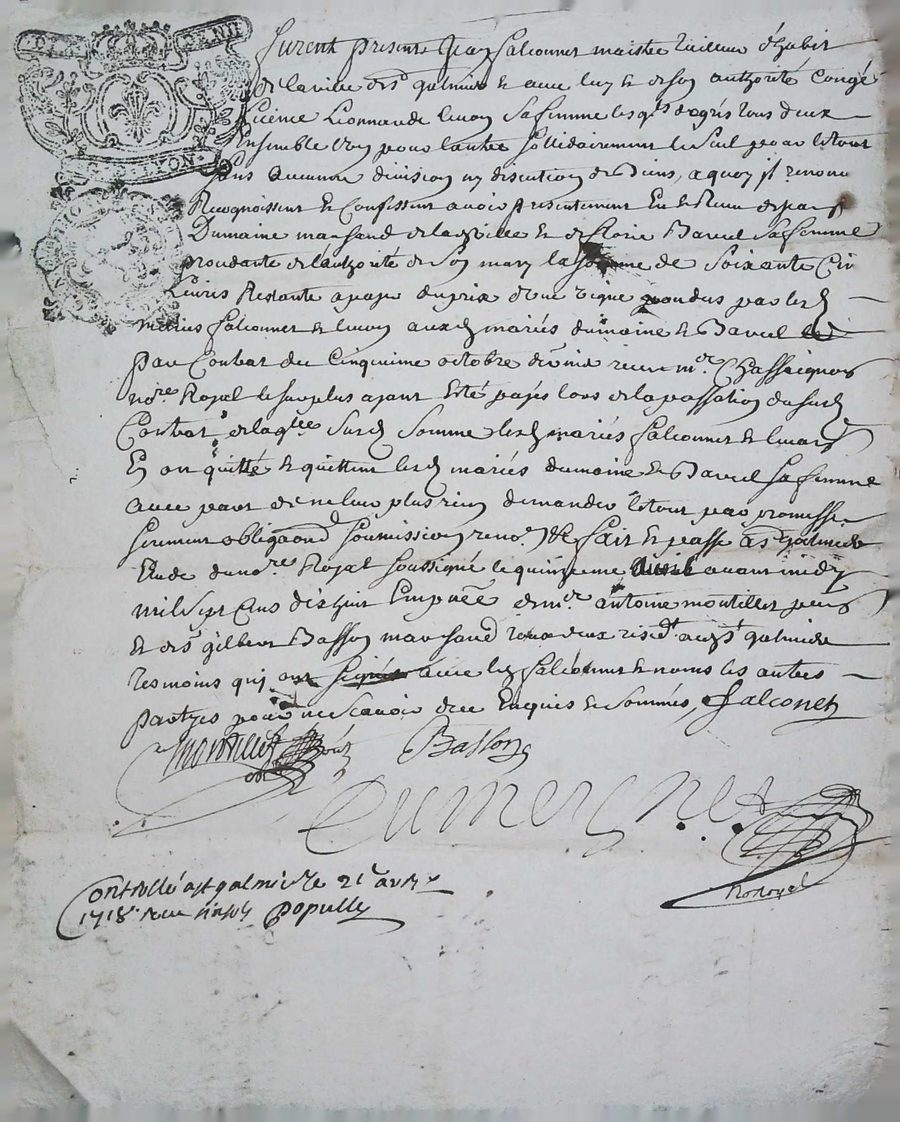 furent present Jean falconnet maistre tailleur d'habit
de la ville de St galmier & avec luy & de son authorité congé
licence Leonnarde luvon sa femme lesqls de grés tous deux
Ensemble l'un pour l'autre sollidairement le seul pour le tout
sans aucune division ny discution de biens, a quoy il renonc
Recognoissent & Confessent avoir presentement Eu & Receu de
Dumaine marchand de lad ville & de florie Barcel sa femme
procedante de l'authorité de son mary la somme de soixante cin
Livres Restante a payer du prix d'une vigne vendue par lesd
mariés falconnet & luvon auxd mariés dumaine & Barcel
par Contrat du Cinquieme octobre dernier receu mre Chassaignon
nore Royal le surplus ayant esté payés lors de la passation du susd
Contrat de laqlle susd somme lesd mariés falconnet & luvon
En ont quitté & quittent lesd mariés dumaine & Barcel sa femme
avec pact de ne leur plus rien demander le tout par promesse
serement obligaon soumission reno fait & passé a St galmier
Etude du nore Royal soussigné le quinzieme avril avant midy
mil sept cens dix huit En presence de mre antoine montillet
& de sr gilbert Basson marchand tous deux residt aud St galmier
tesmoins qui ont signés avec led falconnet & nomis les autres
partyes pour ne scavoir de ce Enquis & sommés, falconet
montillet Basson
Dumeignet
no royal
Controllé a St galmier le 21 avril
1718 receu Populle